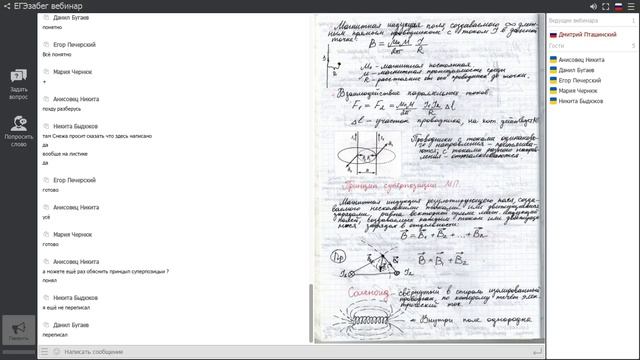 ЕГЭзабег вебинар
Задать вопрос
Попросить слово
Данил Бугаев
понятно
Егор Печерский
Всё понятно
Мария Чернюк
+
Анисовец Никита
походу разберусь
Никита Быдюков
там Снежа просит сказать что здесь написано
да
вообще на листике
да
Егор Печерский
готово
Анисовец Никита
усё
Мария Чернюк
готово
Анисовец Никита
а можете ещё раз обяснить принцип суперпозиции ?
понял
Никита Быдюков
я ещё не переписал
Данил Бугаев
переписал
Написать сообщение
Магнитная индукция поля, создаваемого ∞ длинным прямым проводником с током I в данной точке:
B = μ₀μ/2π · I/R
μ₀ - магнитная постоянная
μ - магнитная проницаемость среды
R - расстояние от его проводника до точки.
Взаимодействие параллельных токов:
F₁ = F₂ = μ₀μ/2π · I₁I₂/R Δl
Δl - участок проводника, на кот. действует
Проводники с токами одинакового направления - притягиваются, с токами разного направления - отталкиваются
Принцип суперпозиции МП.
Магнитная индукция результирующего поля, создаваемого несколькими токами или движущимися зарядами, равна векторной сумме магн. индукций полей, создаваемых каждым током или движущимся зарядом в отдельности:
B = B₁ + B₂ + ... + Bn
Пр
I₁
I₂
B = B₁ + B₂
Соленоид - свёрнутый в спираль изолированный проводник, по которому течёт электрический ток.
Внутри поле однородно
Ведущие вебинара 1
Дмитрий Пташинский
Гости 5
Анисовец Никита
Данил Бугаев
Егор Печерский
Мария Чернюк
Никита Быдюков